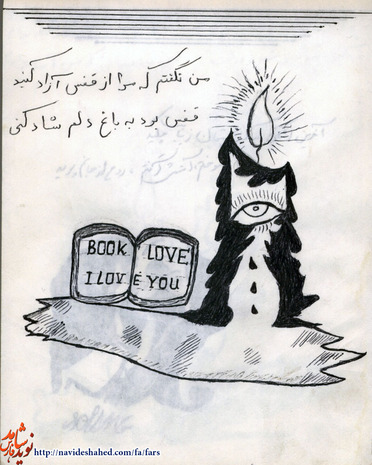 من نگفتم که مرا از قفس آزاد کنید
قفس بود به باغ دلم شاد کنی
BOOK LOVE
I LOVE YOU
نوید شاهد
http://navideshahed.com/fa/fars